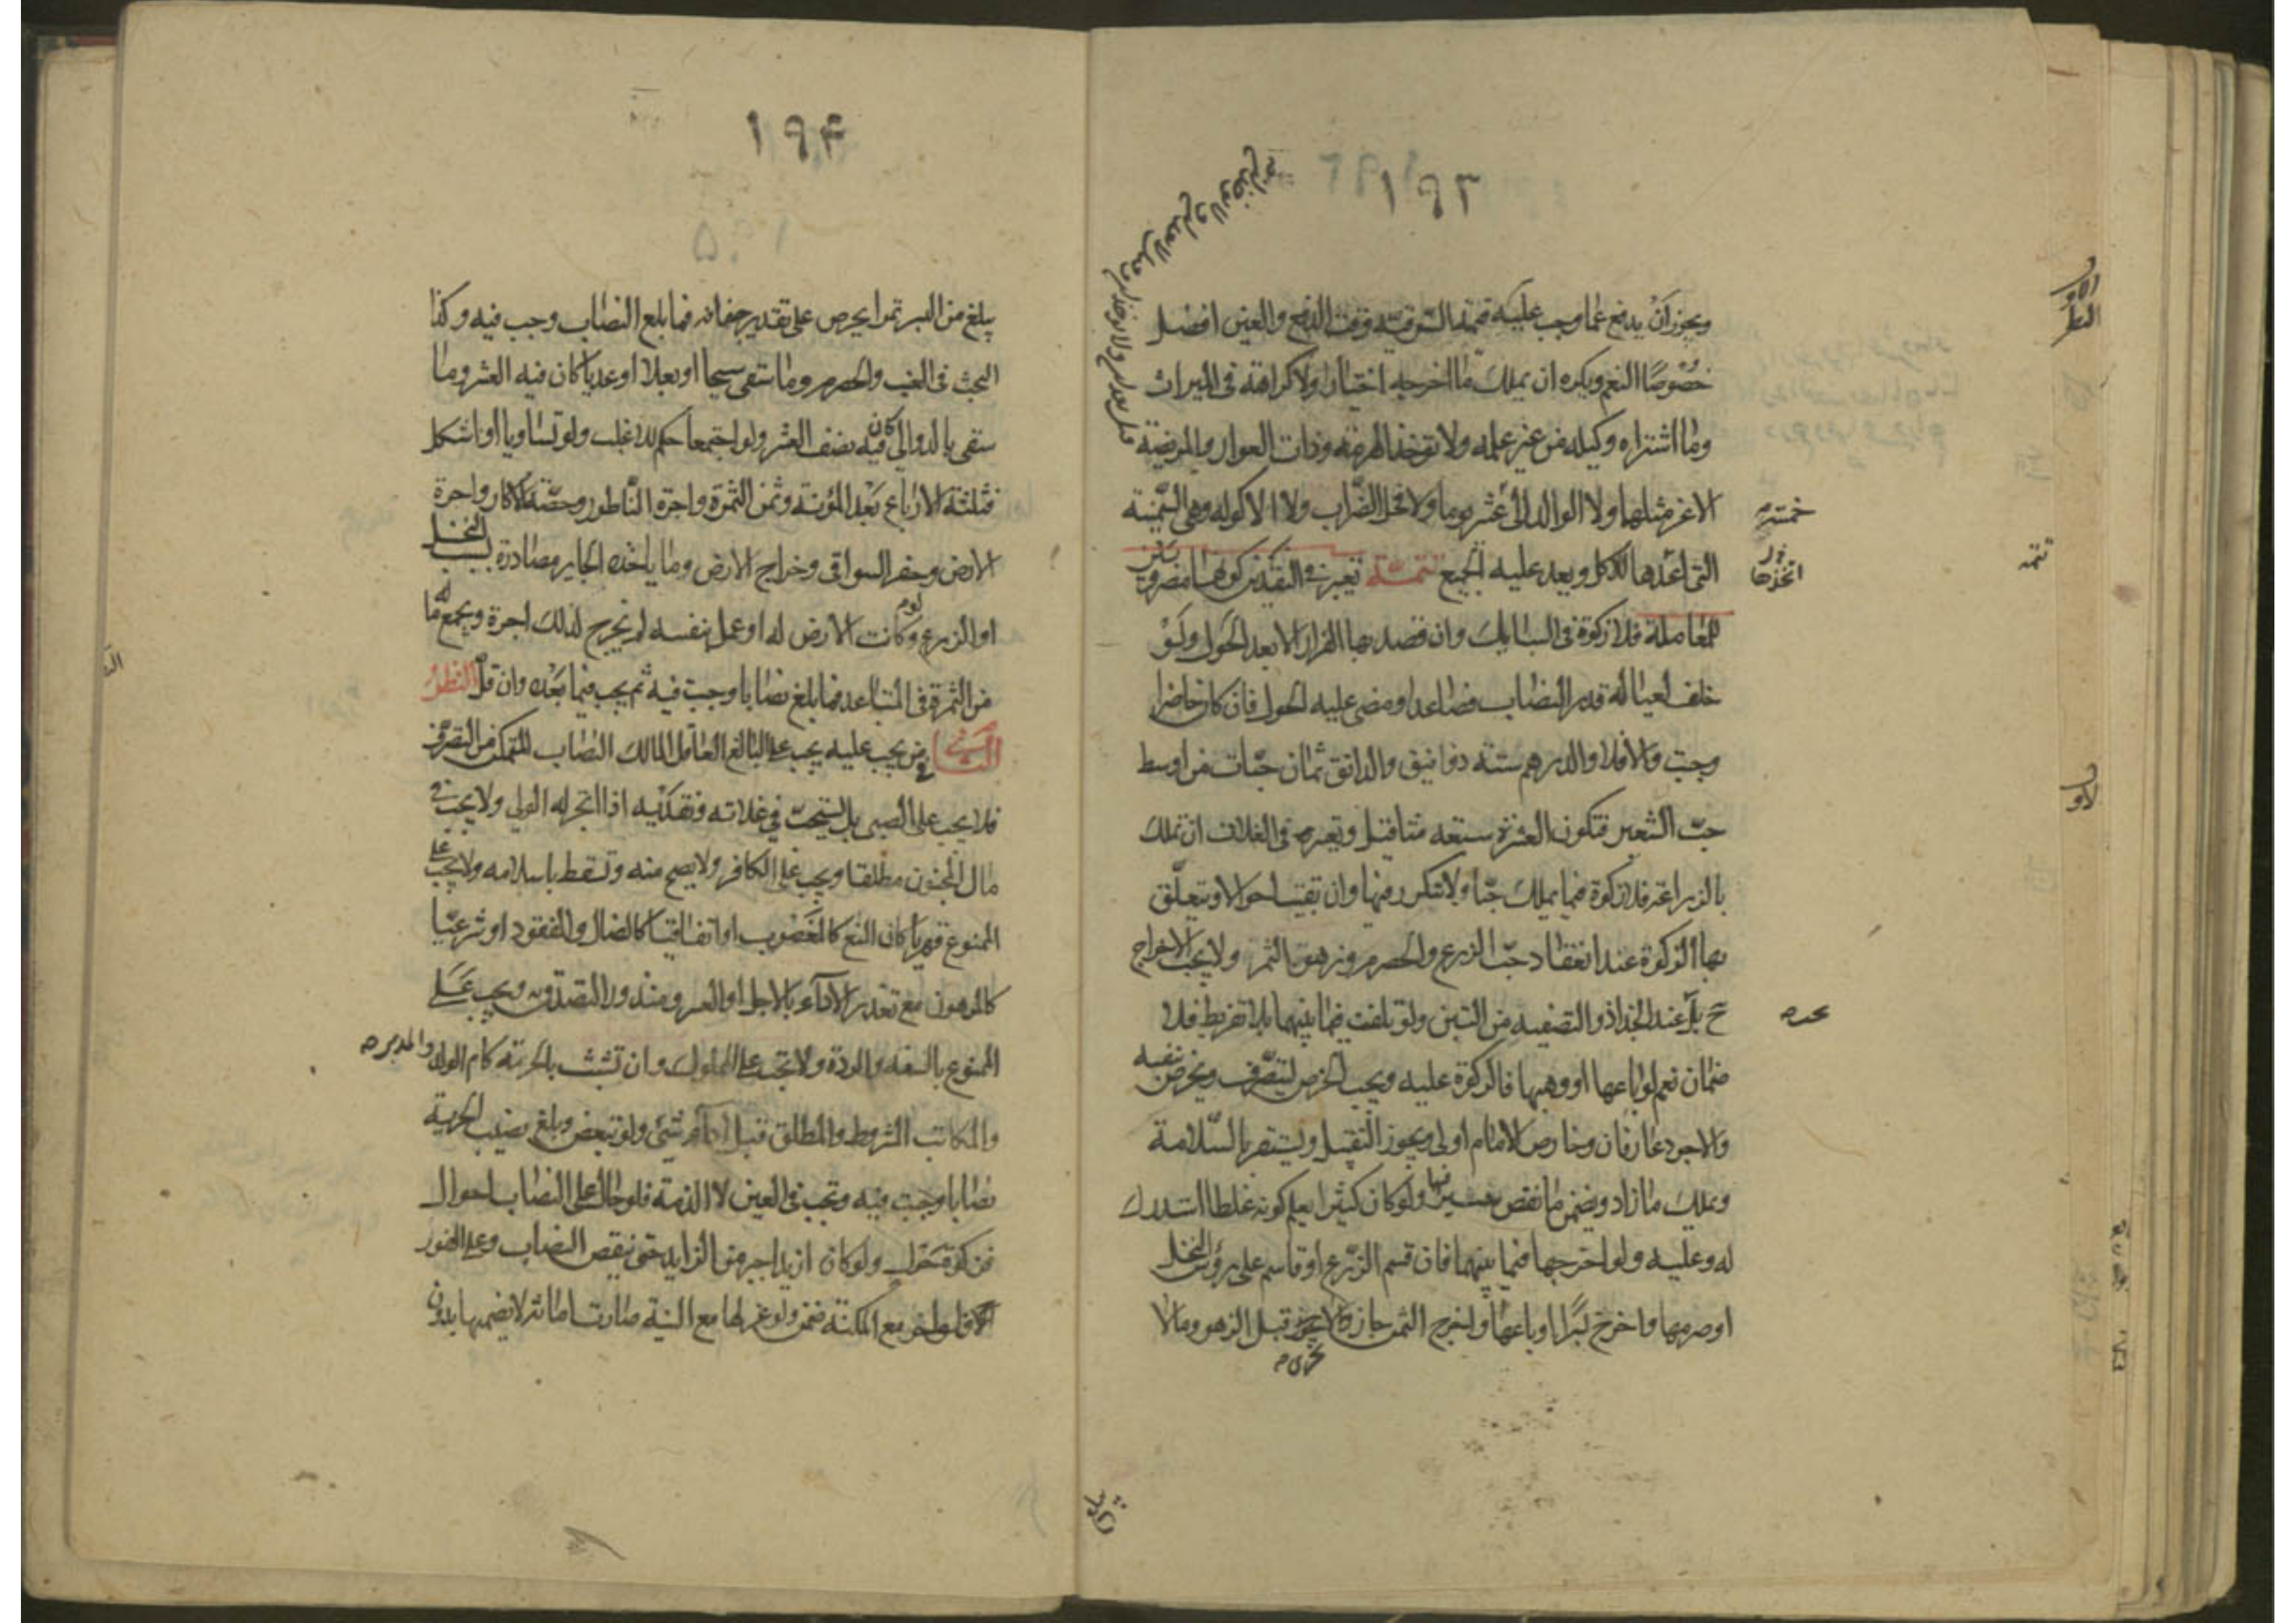 ١٩٣
ويجوز أن يدفع عما وجب عليه قيمته السوقية وقت الدفع والعين افضل
خصوصًا النعم ويكره ان يملك ما اخرجه اختيارا ولا كراهة في الميراث
وما اشتراه وكيله من غير علمه ولا تؤخذ الهرمة وذات العوار والمريضة
الا عن مثلها ولا الوالد الى خمسة عشر يوما ولا فحل الضراب ولا الاكولة وهي السمينة
التي اعدها للاكل ويعد عليه الجميع تتمة يعتبر في النقدين كونهما مضروبين
للمعاملة فلا زكوة في السبايك وان قصد بها الفرار الا بعد الحول ولو
خلف لعياله قدر النصاب فصاعدا ومضى عليه الحول فان كان حاضرا
وجبت والا فلا والدرهم ستة دوانيق والدانق ثمان حبات من اوسط
حب الشعير فتكون العشرة سبعة مثاقيل ويعتبر في الغلات ان تملك
بالزراعة فلا زكوة فيما يملك حبا ولا تتكرر فيها وان بقيت احوالا ويتعلق
بها الزكوة عند انعقاد حب الزرع والحصرم وزهو الثمر ولا يجب الاخراج
ح بل عند الجذاذ والتصفية من التبن ولو تلفت فيما بينهما بلا تفريط فلا
ضمان نعم لو باعها او وهبها فالزكوة عليه ويجب الخرص ليتصرف ويخرص بنفسه
والاجود عارفان وخارص الامام اولى ويجوز التقبيل ويستقر بالسلامة
ويملك ما زاد ويضمن ما نقص فيهما ولو كان كثيرا يعلم كونه غلطا استدرك
له وعليه ولو اخرجها فيما بينهما فان قسم الزرع او قاسم على رؤس النخل
او صرمها واخرج بسرا او باعها واخرج الثمن جاز والا يجوز قبل الزهو وما لا
خمسة
اتخذها
١٩٤
يبلغ من البسر تمرا يخرص على تقدير جفافه فما بلغ النصاب وجب فيه وكذا
البحث في العنب والحصرم وما سقي سيحا او بعلا او عذيا كان فيه العشر وما
سقي بالدوالي كان فيه نصف العشر ولو اجتمعا حكم للاغلب ولو تساويا او اشكل
فثلثة الارباع بعد المؤنة وثمن الثمرة واجرة الناطور وحصة الاكار واجرة
الارض وحفر السواقي وخراج الارض وما ياخذه الجاير مصادرة بسبب النخل
او الزرع ولو كانت الارض له او عمل بنفسه لم يخرج لذلك اجرة ويجمع له ما
من الثمرة في المتباعد فما بلغ نصابا وجبت فيه ثم يجب فيما بعده وان قل النظر
الثاني في من يجب عليه يجب على البالغ العاقل المالك النصاب المتمكن من التصرف
فلا يجب على الصبي بل يستحب في غلاته ونقديه اذا اتجر له الولي ولا يجب في
مال المجنون مطلقا ويجب على الكافر ولا يصح منه وتسقط باسلامه ولا يجب على
الممنوع قهريا كان المنع كالمغصوب او اتفاقيا كالضال والمفقود او شرعيا
كالمرهون مع تعذر الاداء بالاجل او العسر ومنذور التصدق به ويجب على
الممنوع بالسفه والردة ولا تجب على المملوك وان تشبث بالحرية كام الولد والمدبر
والمكاتب المشروط والمطلق قبل اداء شيء ولو تبعض وبلغ نصيب الحرية
نصابا وجبت فيه وتجب في العين لا الذمة فلو حال على النصاب احوال
فزكوة حول ولو كان ازيد اجبر من الزايد حتى ينقص النصاب وعلى الفور
فلو اخر مع المكنة ضمن ولو عزلها مع النية صارت امانة لا يضمنها بدون